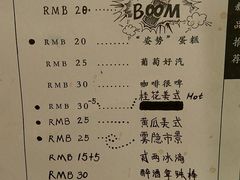 RMB 20
BOOM
RMB 20 姿势 蛋糕
RMB 25 葡萄好汽
RMB 30 咖啡很啤
RMB 30-5 桂花美式 Hot
RMB 25 黄瓜美式
RMB 25 雾隐市景
RMB 15+5
RMB 30